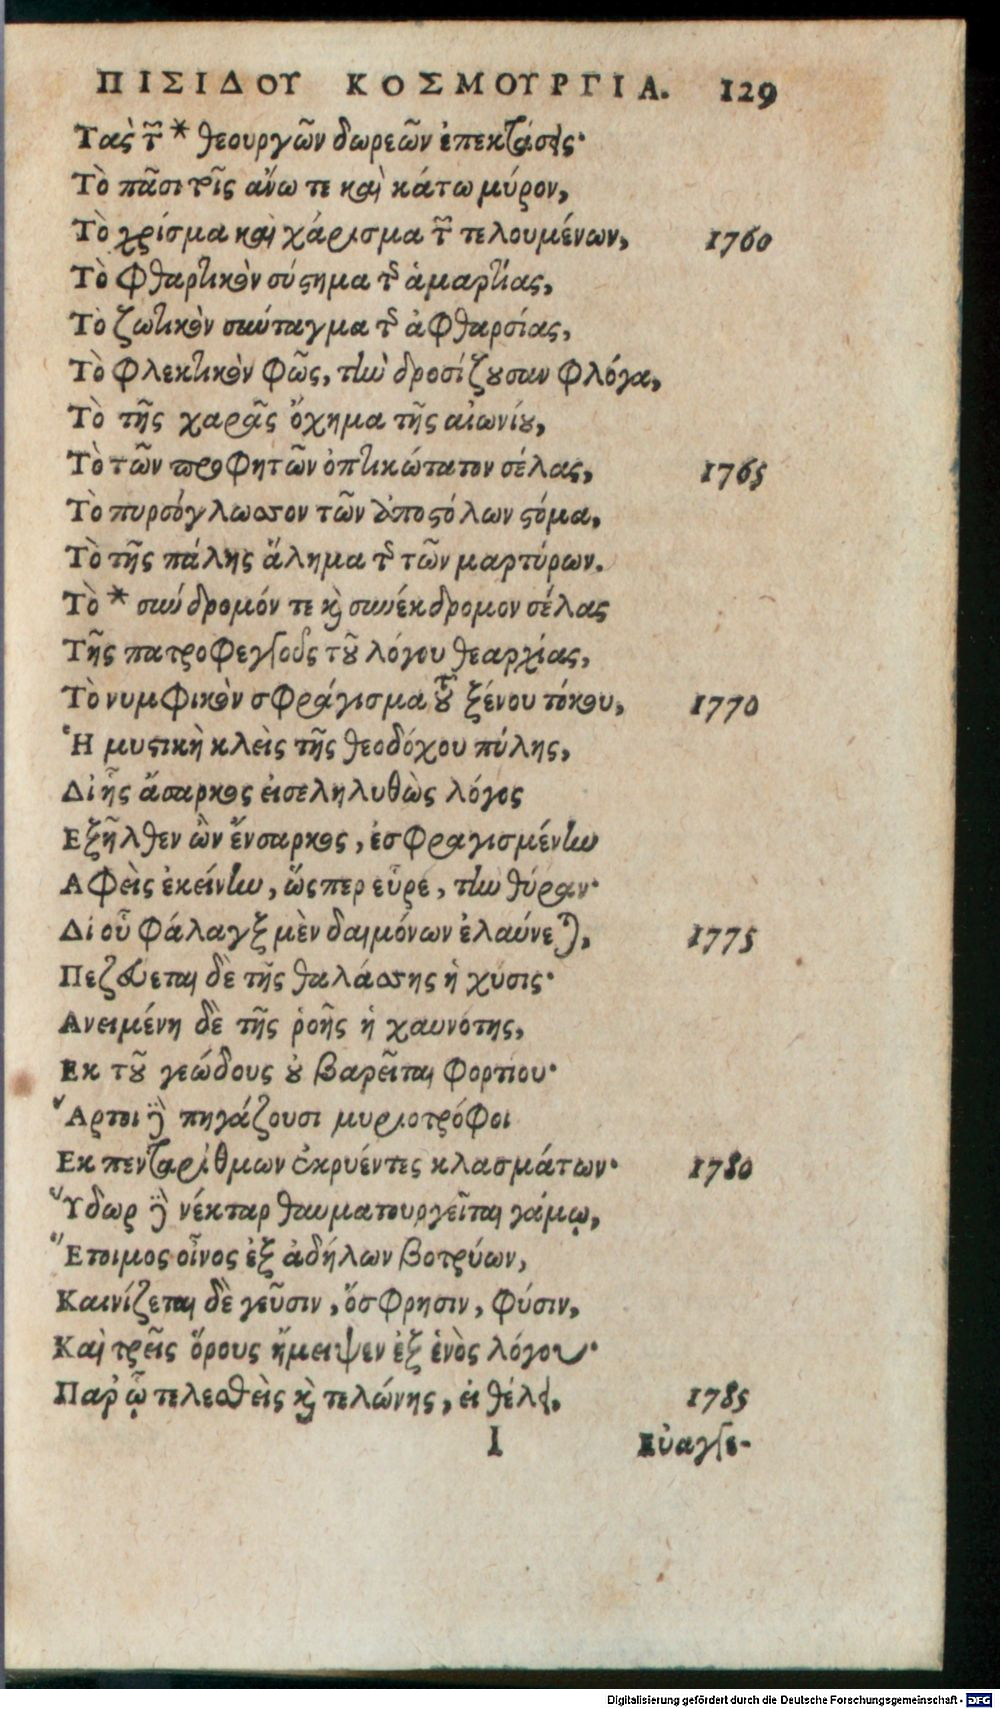 ΠΙΣΙΔΟΥ ΚΟΣΜΟΥΡΓΙΑ. 129
Τὰς τῶν * θεουργῶν δωρεῶν ἐπεκτάσεις·
Τὸ πᾶσι τοῖς ἄνω τε καὶ κάτω μύρον,
Τὸ χρίσμα καὶ χάρισμα τῶν τελουμένων, 1760
Τὸ φθαρτικὸν σύστημα τῆς ἁμαρτίας,
Τὸ ζωτικὸν σύνταγμα τῆς ἀφθαρσίας,
Τὸ φλεκτικὸν φῶς, τὴν δροσίζουσαν φλόγα,
Τὸ τῆς χαρᾶς ὄχημα τῆς αἰωνίου,
Τὸ τῶν προφητῶν ὀπτικώτατον σέλας, 1765
Τὸ πυρσόγλωσσον τῶν ἀποστόλων στόμα,
Τὸ τῆς πάλης ἄλημα τῆς τῶν μαρτύρων.
Τὸ * σύνδρομόν τε καὶ συνέκδρομον σέλας
Τῆς πατροφεγγοῦς τοῦ λόγου θεαρχίας,
Τὸ νυμφικὸν σφράγισμα τοῦ ξένου τόκου, 1770
Ἡ μυστικὴ κλεὶς τῆς θεοδόχου πύλης,
Δι ἧς ἄσαρκος εἰσεληλυθὼς λόγος
Εξῆλθεν ὢν ἔνσαρκος, ἐσφραγισμένην
Αφεὶς ἐκείνην, ὥσπερ εὗρε, τὴν θύραν·
Δι οὗ φάλαγξ μὲν δαιμόνων ἐλαύνεται, 1775
Πεζεύεται δὲ τῆς θαλάσσης ἡ χύσις·
Ανειμένη δὲ τῆς ῥοῆς ἡ χαυνότης,
Εκ τοῦ γεώδους οὐ βαρεῖται φορτίου·
Ἄρτοι δὲ πηγάζουσι μυριοτρόφοι
Εκ πενταρίθμων ἐκρυέντες κλασμάτων· 1780
Ὕδωρ δὲ νέκταρ θαυματουργεῖται γάμῳ,
Ἕτοιμος οἶνος ἐξ ἀδήλων βοτρύων,
Καινίζεται δὲ γεῦσιν, ὄσφρησιν, φύσιν,
Καὶ τρεῖς ὅρους ἤμειψεν ἐξ ἑνὸς λόγου·
Παρ ᾧ τελεσθεὶς καὶ τελώνης, εἰ θέλει, 1785
I Εὐαγγε-
Digitalisierung gefördert durch die Deutsche Forschungsgemeinschaft - DFG